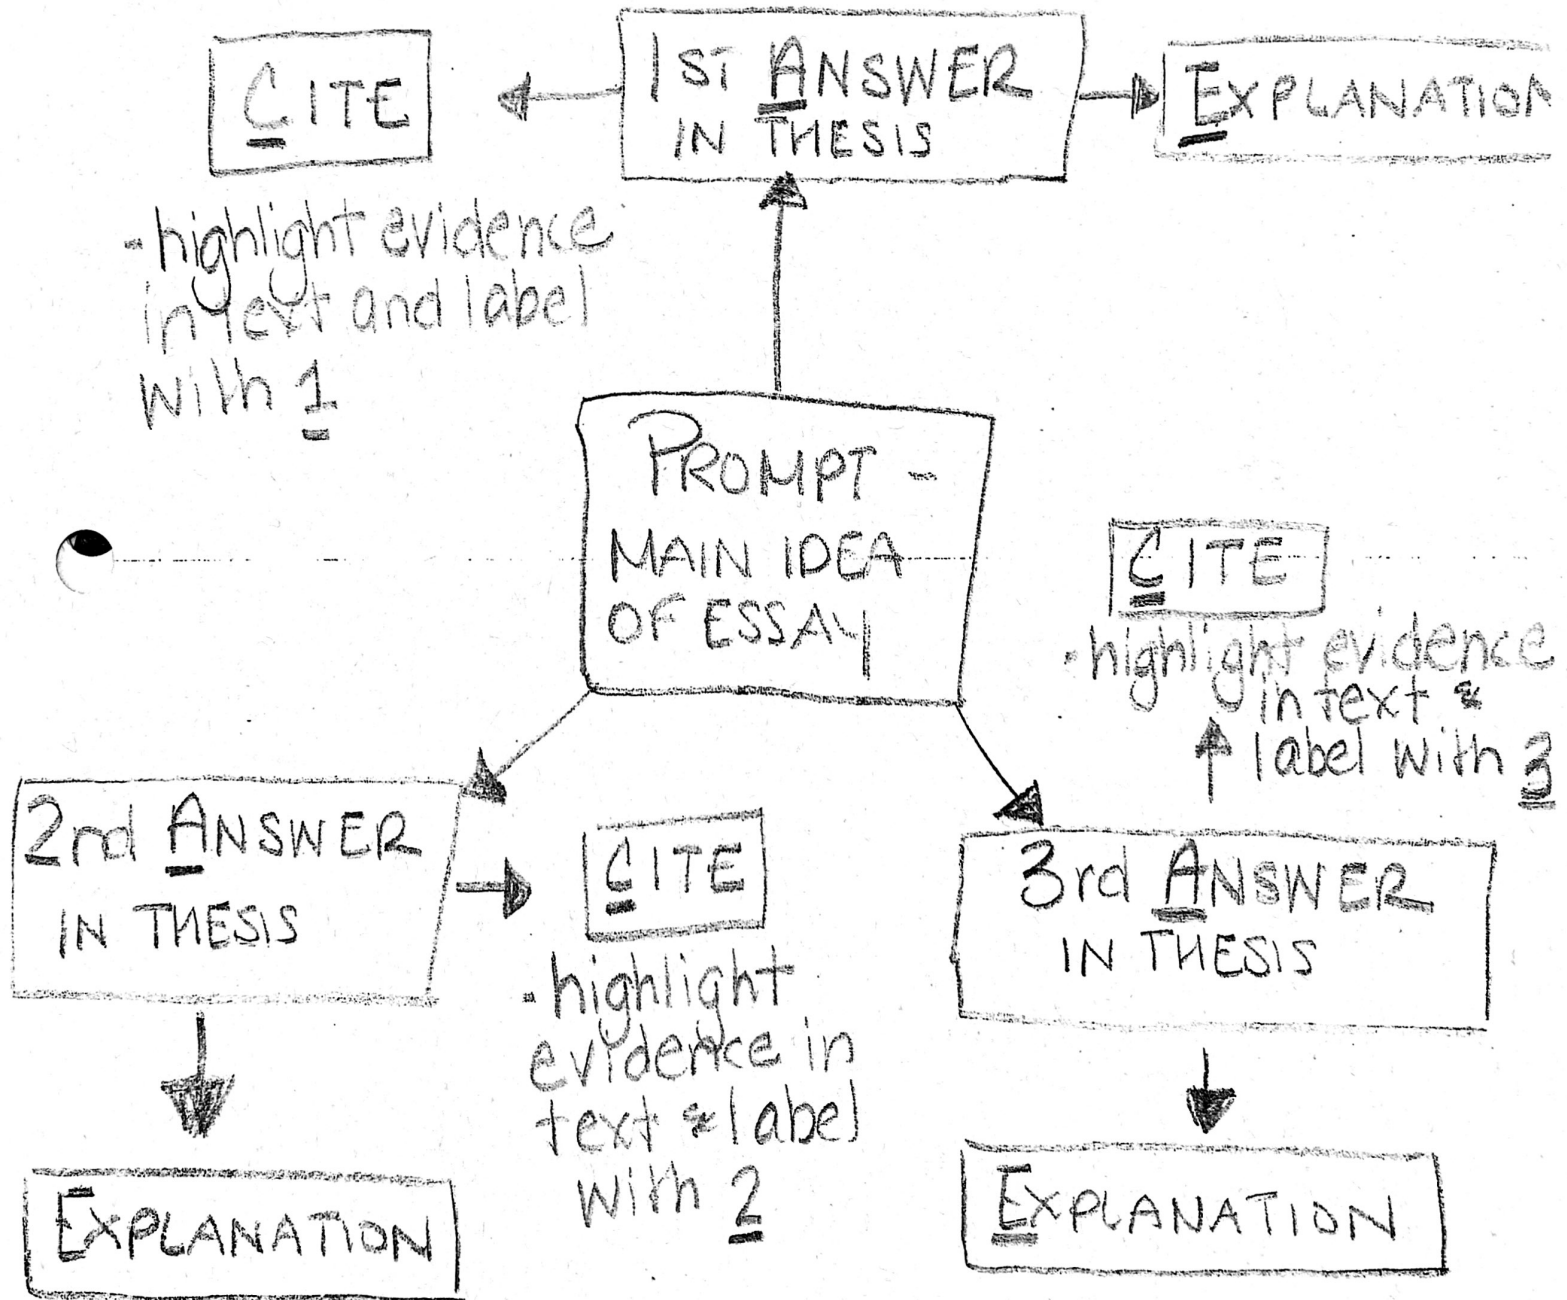 CITE
1ST ANSWER
IN THESIS
EXPLANATION
-highlight evidence
in text and label
with 1
PROMPT -
MAIN IDEA
OF ESSAY
CITE
·highlight evidence
in text &
label with 3
2nd ANSWER
IN THESIS
CITE
·highlight
evidence in
text & label
with 2
3rd ANSWER
IN THESIS
EXPLANATION
EXPLANATION